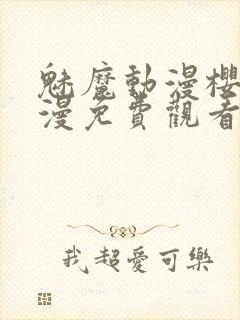 魅魔動漫櫻
漫免費觀看
我超愛可樂